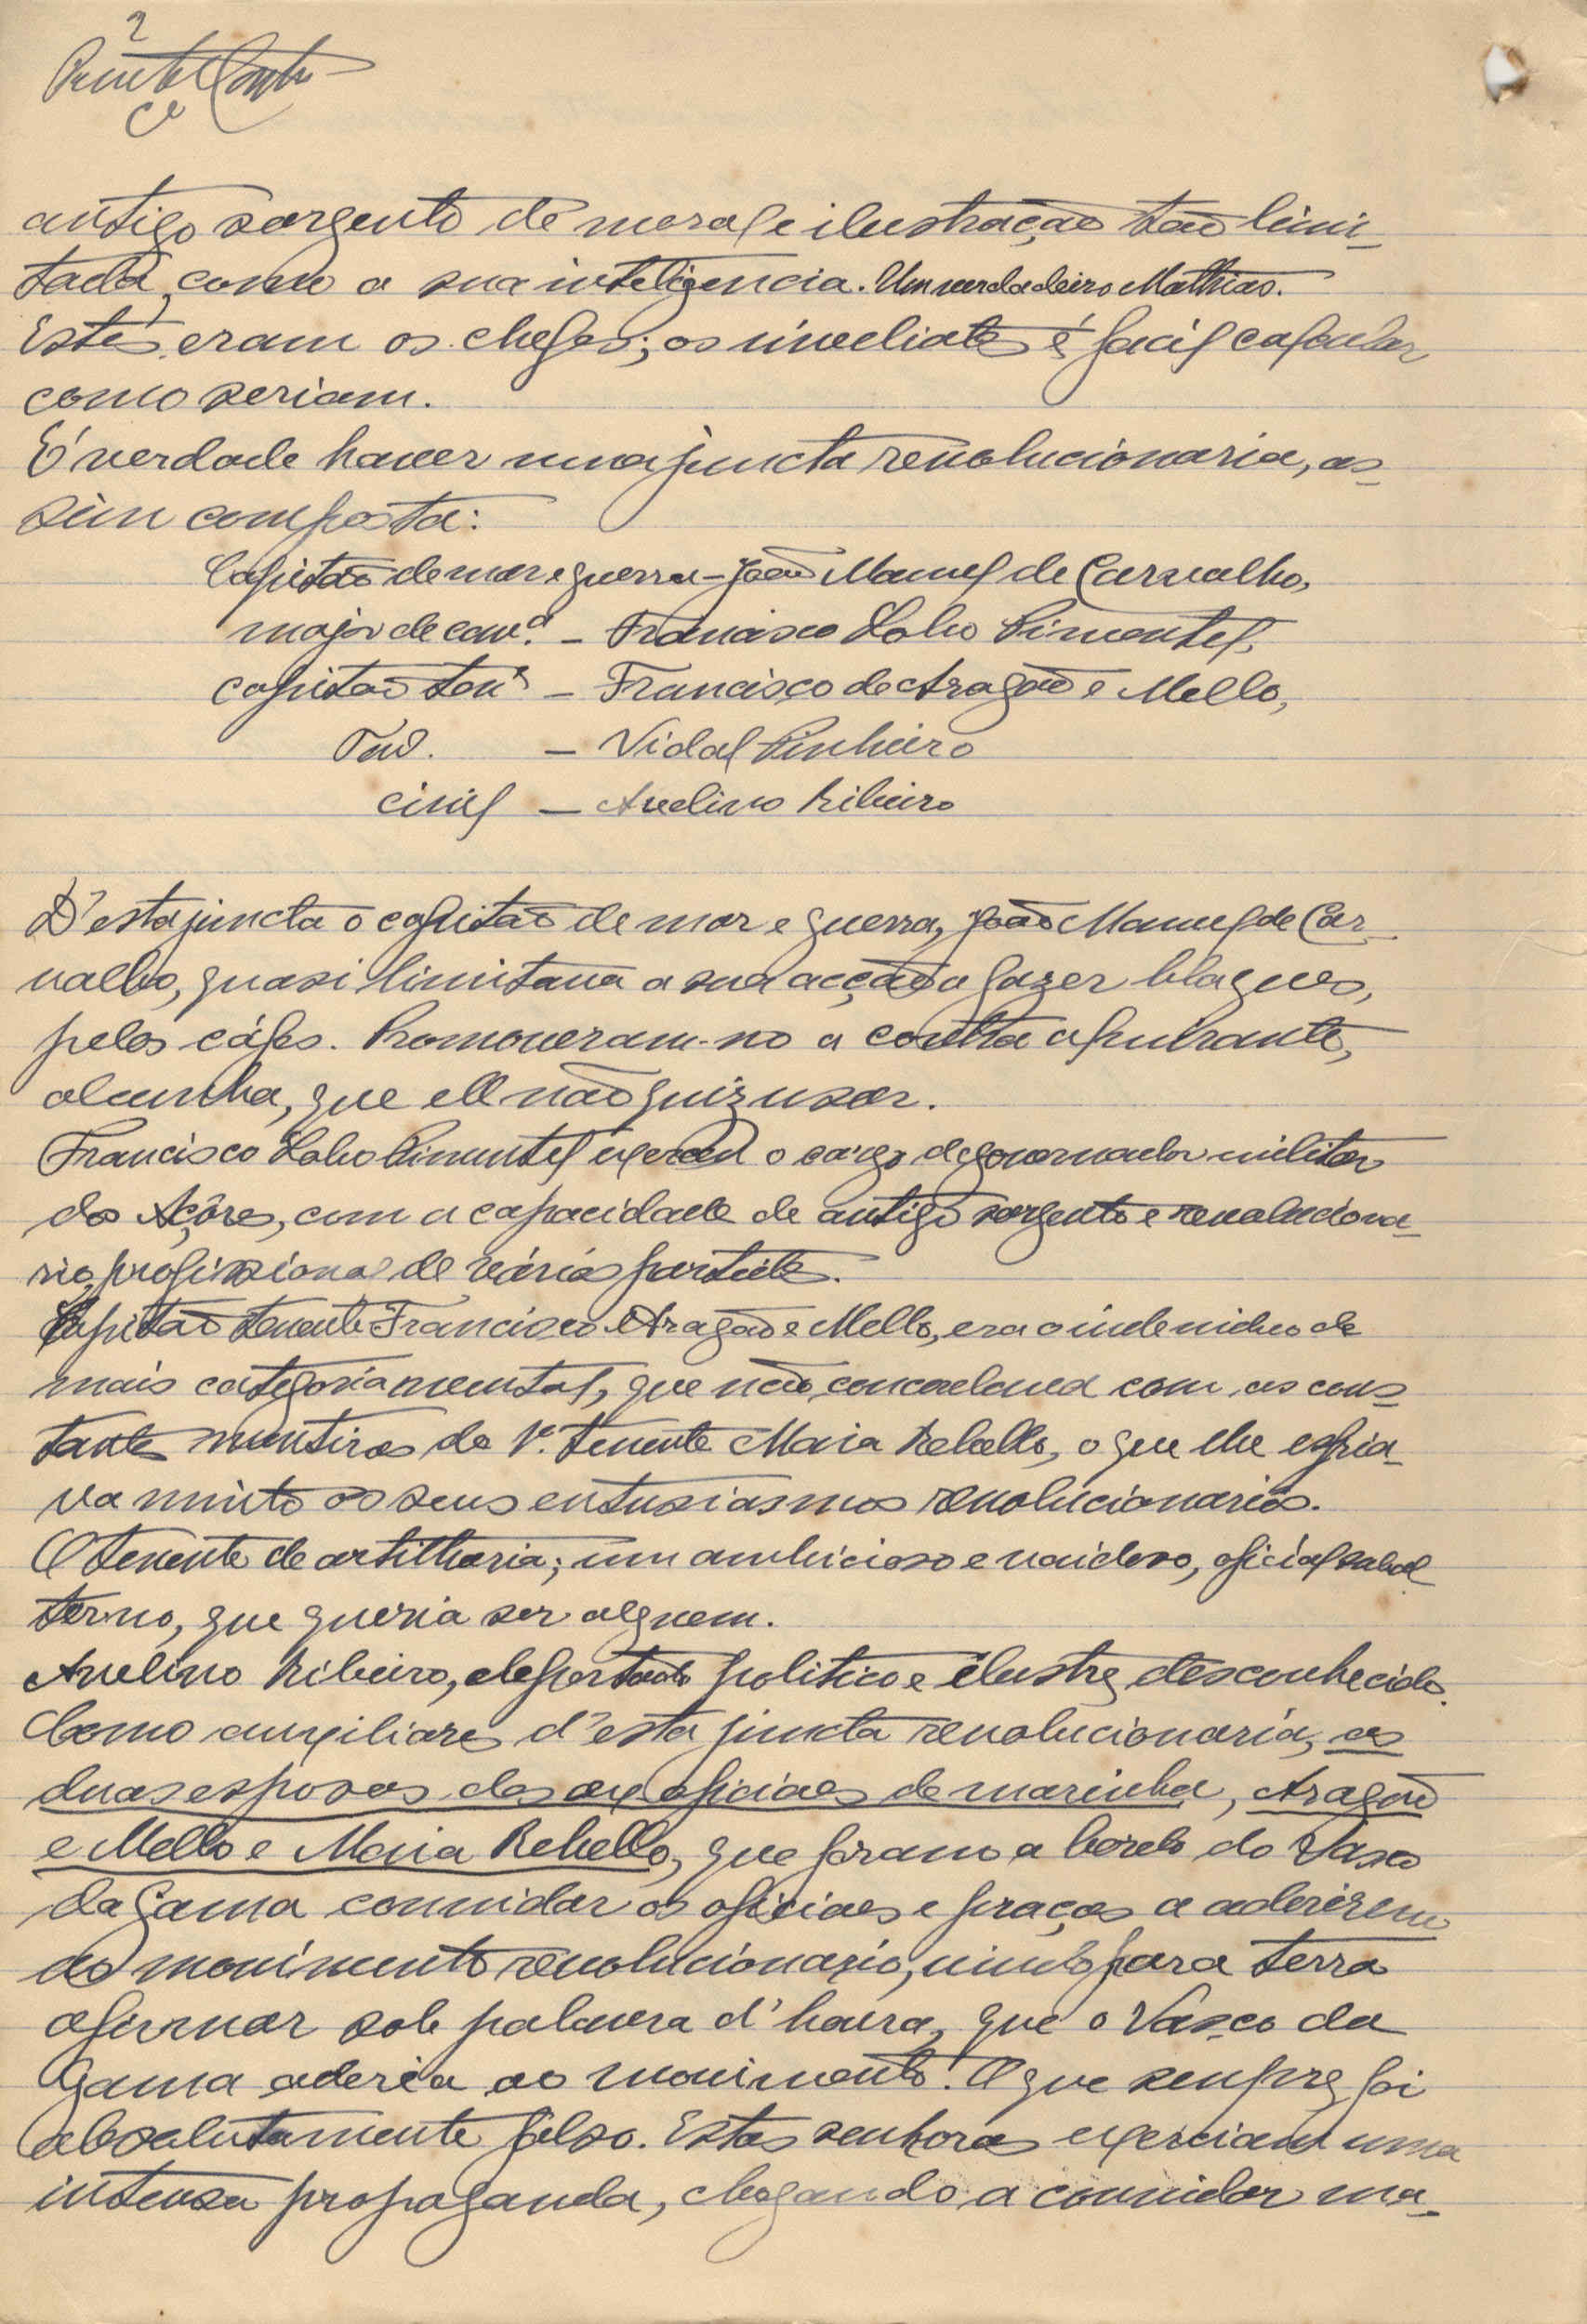 2
antigo sargento de moral e ilustração tão limi-
tada, como a sua inteligencia. Um verdadeiro Mathias.
Estes eram os chefes; os imediatos é facil calcular
como seriam.
É verdade haver uma juncta revolucionaria, as-
sim composta:
Capitão de mar e guerra – João Manuel de Carvalho,
major de cavª. – Francisco Lobo Pimentel,
capitão tenᵗ – Francisco de Aragão e Mello,
Ten. – Vidal Pinheiro
civil – Avelino Ribeiro
D'esta juncta o capitão de mar e guerra, João Manuel de Car-
valho, quasi limitava a sua acção a fazer blagues,
pelos cáfes. Promoveram-no a contra almirante,
alcunha, que elle não quiz usar.
Francisco Lobo Pimentel exerceu o cargo de governador militar
dos Açôres, com a capacidade de antigo sargento e revoluciona-
rio, profissional de vários partidos.
Capitão tenente Francisco Aragão e Mello, era o individuo de
mais categoria mental, que não concordava com as cons-
tantes mentiras do 1º. tenente Maia Rebello, o que lhe esfria-
va muito os seus entusiasmos revolucionarios.
O tenente de artilharia; um ambicioso e vaidoso, oficial subal
terno, que queria ser alguem.
Avelino Ribeiro, deportado politico e ilustre desconhecido.
Como auxiliares d'esta juncta revolucionaria, as
duas esposas dos ex oficiaes de marinha, Aragão
e Mello e Maia Rebello, que foram a bordo do Vasco
da Gama convidar os oficiaes e praças a aderirem
ao movimento revolucionario, vindo para terra
afirmar sob palavra d'honra, que o Vasco da
Gama aderia ao movimento! O que sempre foi
absolutamente falso. Estas senhoras exerciam uma
intensa propaganda, chegando a convidar ma-